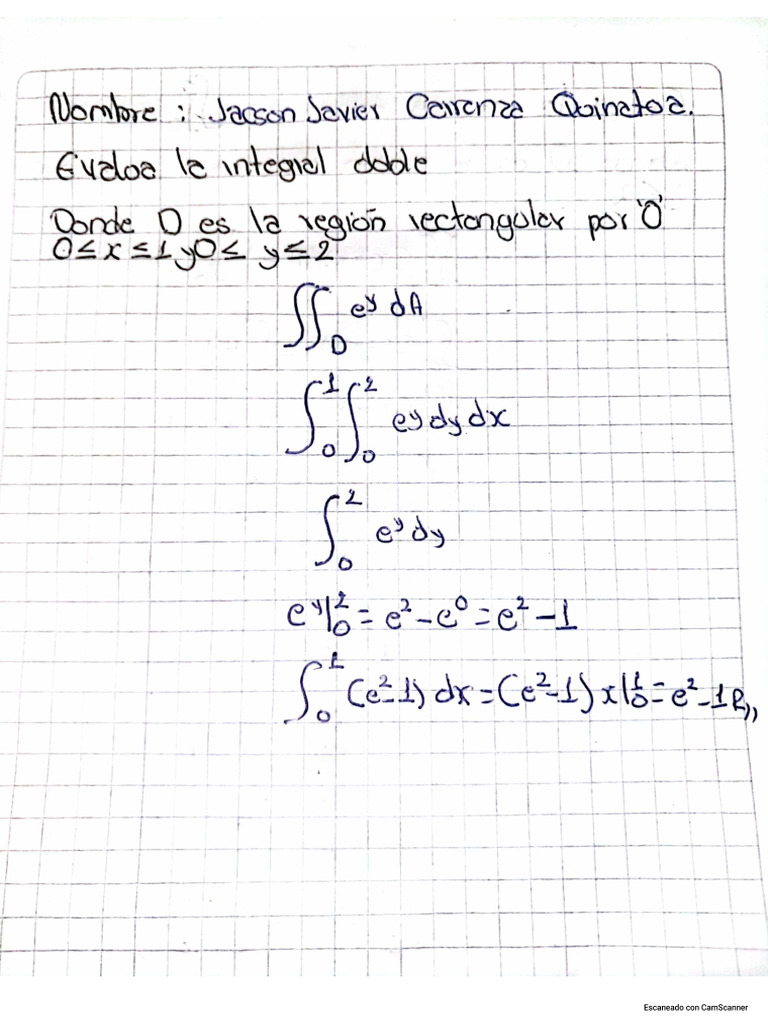 Nombre : Jacson Javier Carranza Quinatoa.
Evaloa la integral doble
Donde D es la región rectangular por 'O'
0 ≤ x ≤ 1 y 0 ≤ y ≤ 2
∬_D e^y dA
∫_0^1 ∫_0^2 ey dy dx
∫_0^2 e^y dy
e^y|_0^2 = e^2 - e^0 = e^2 - 1
∫_0^1 (e^2 - 1) dx = (e^2 - 1) x|_0^1 = e^2 - 1 R,,
Escaneado con CamScanner